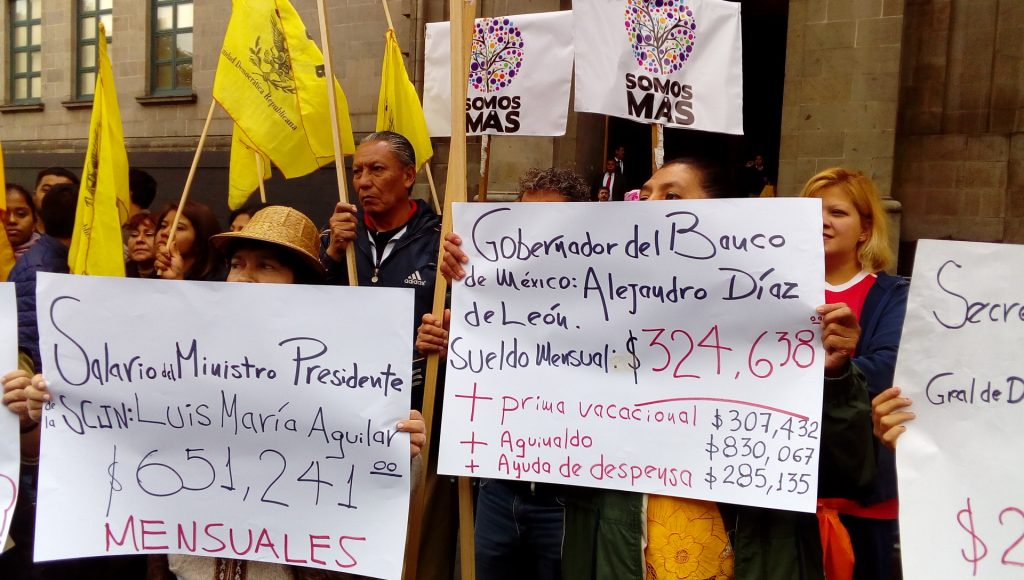 Sociedad Democrática Republicana
SOMOS
MÁS
SOMOS
MÁS
Salario del Ministro Presidente
de la SCJN: Luis María Aguilar
$651,241.00
MENSUALES
Gobernador del Banco
de México: Alejandro Díaz
de León.
Sueldo Mensual: $324,638.00
+ prima vacacional $307,432
+ Aguinaldo $830,067
+ Ayuda de despensa $285,135
adidas
Secre
Gral de D
$2